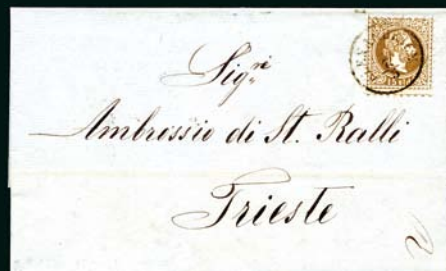 Sigri
Ambrossio di St. Ralli
Trieste